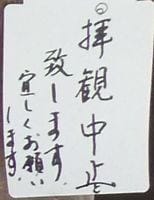 ◎拝観中止
致します
宜しくお願い
します。